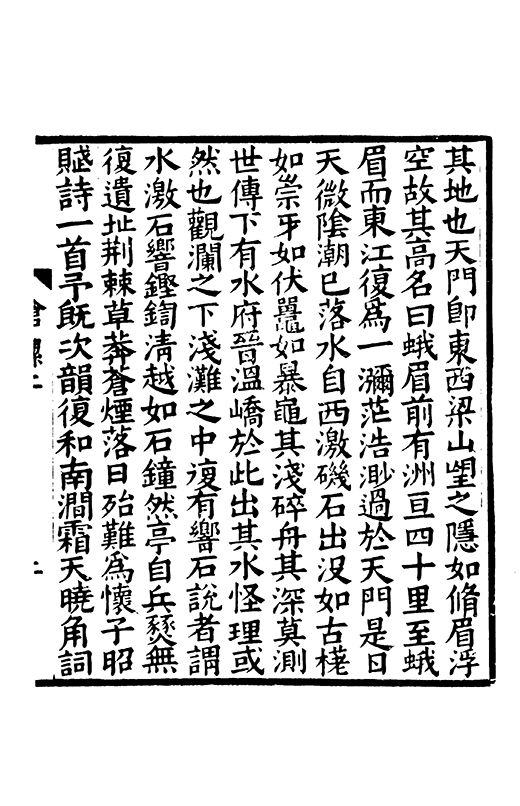 其地也天門卽東西梁山望之隱如脩眉浮
空故其高名曰蛾眉前有洲亘四十里至蛾
眉而東江復爲一瀰茫浩渺過於天門是日
天微陰潮已落水自西激磯石出没如古槎
如崇牙如伏鼉如暴龜其淺碎舟其深莫測
世傳下有水府晉溫嶠於此出其水怪理或
然也觀瀾之下淺灘之中復有響石說者謂
水激石響鏗鍧淸越如石鐘然亭自兵燹無
復遺址荆棘草莽蒼煙落日殆難爲懷子昭
賦詩一首予旣次韻復和南澗霜天曉角詞